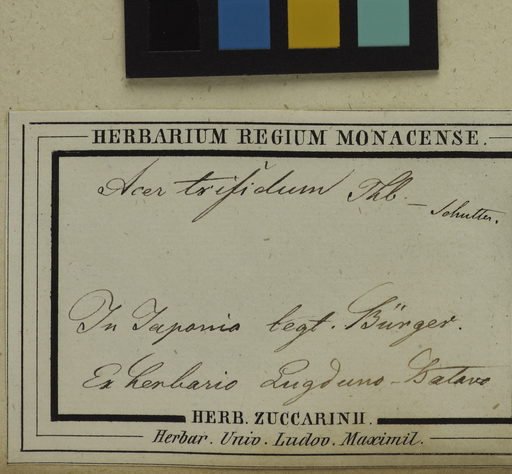 HERBARIUM REGIUM MONACENSE.
Acer trifidum Thb. – Schultes.
In Japonia legt. Bürger.
Ex herbario Lugduno-Batavo
HERB. ZUCCARINII.
Herbar. Univ. Ludov. Maximil.